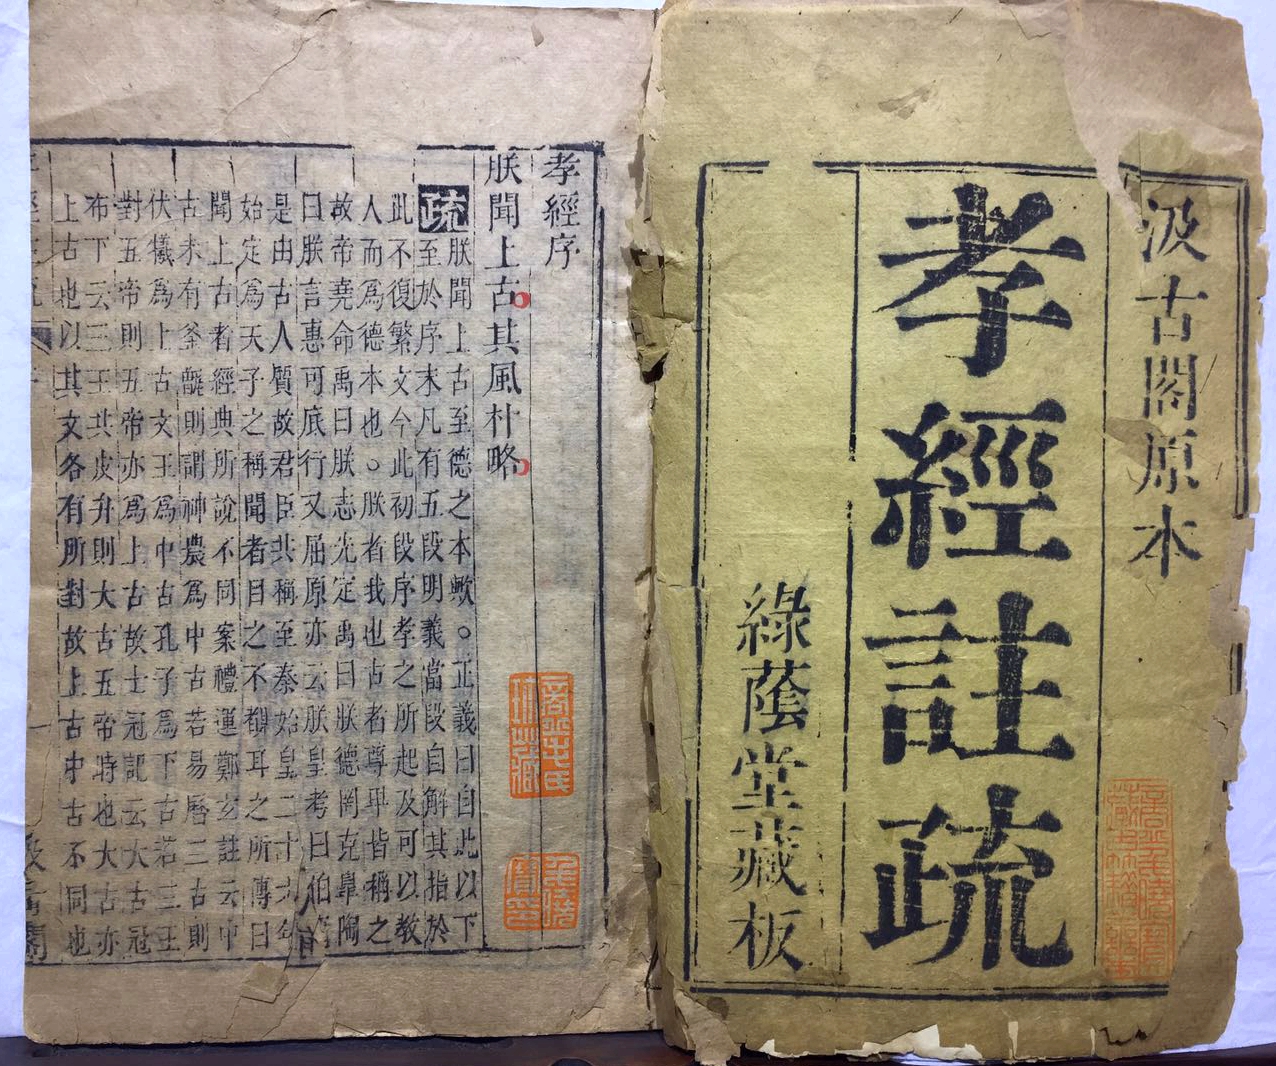 汲古閣原本
孝經註疏
綠蔭堂藏板
孝經序
朕聞上古其風朴略
疏朕聞上古至德之本歟。正義曰自此以下
至於序末凡有五段明義當段自解其指於
此不復繁文今此初段序孝之所起及可以教
人而為德本也。朕者我也古者尊卑皆稱之
故帝堯命禹曰朕志先定禹曰朕德罔克臯陶
曰朕言惠可底行又屈原亦云朕皇考曰伯庸
是由古人質故君臣共稱至秦始皇二十六年
始定為天子之稱聞者目之不覩耳之所傳曰
聞上古者經典所說不同案禮運鄭玄註云中
古未有釜甑則謂神農為中古若易曆三古則
伏犧為上古文王為中古孔子為下古若三王
對五帝則五帝亦為上古故士冠記云大古冠
布下云三王共皮弁則大古五帝時也大古亦
上古也以其文各有所對故上古中古不同也